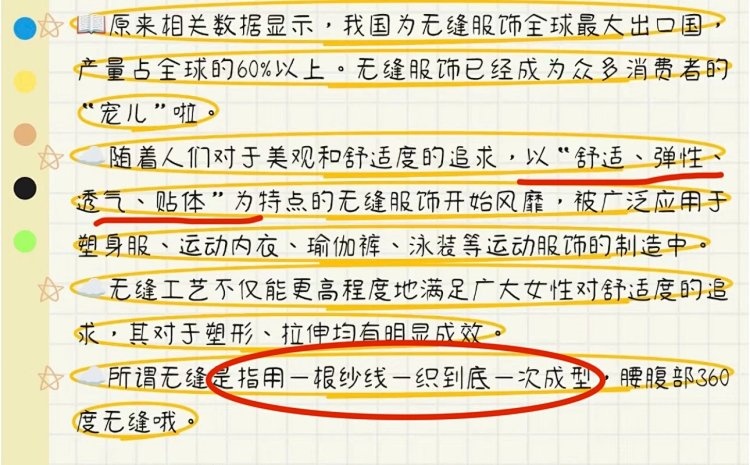 📖原来相关数据显示，我国为无缝服饰全球最大出口国，
产量占全球的60%以上。无缝服饰已经成为众多消费者的
“宠儿”啦。
☁️随着人们对于美观和舒适度的追求，以“舒适、弹性、
透气、贴体”为特点的无缝服饰开始风靡，被广泛应用于
塑身服、运动内衣、瑜伽裤、泳装等运动服饰的制造中。
☁️无缝工艺不仅能更高程度地满足广大女性对舒适度的追
求，其对于塑形、拉伸均有明显成效。
☁️所谓无缝是指用一根纱线一织到底一次成型，腰腹部360
度无缝哦。